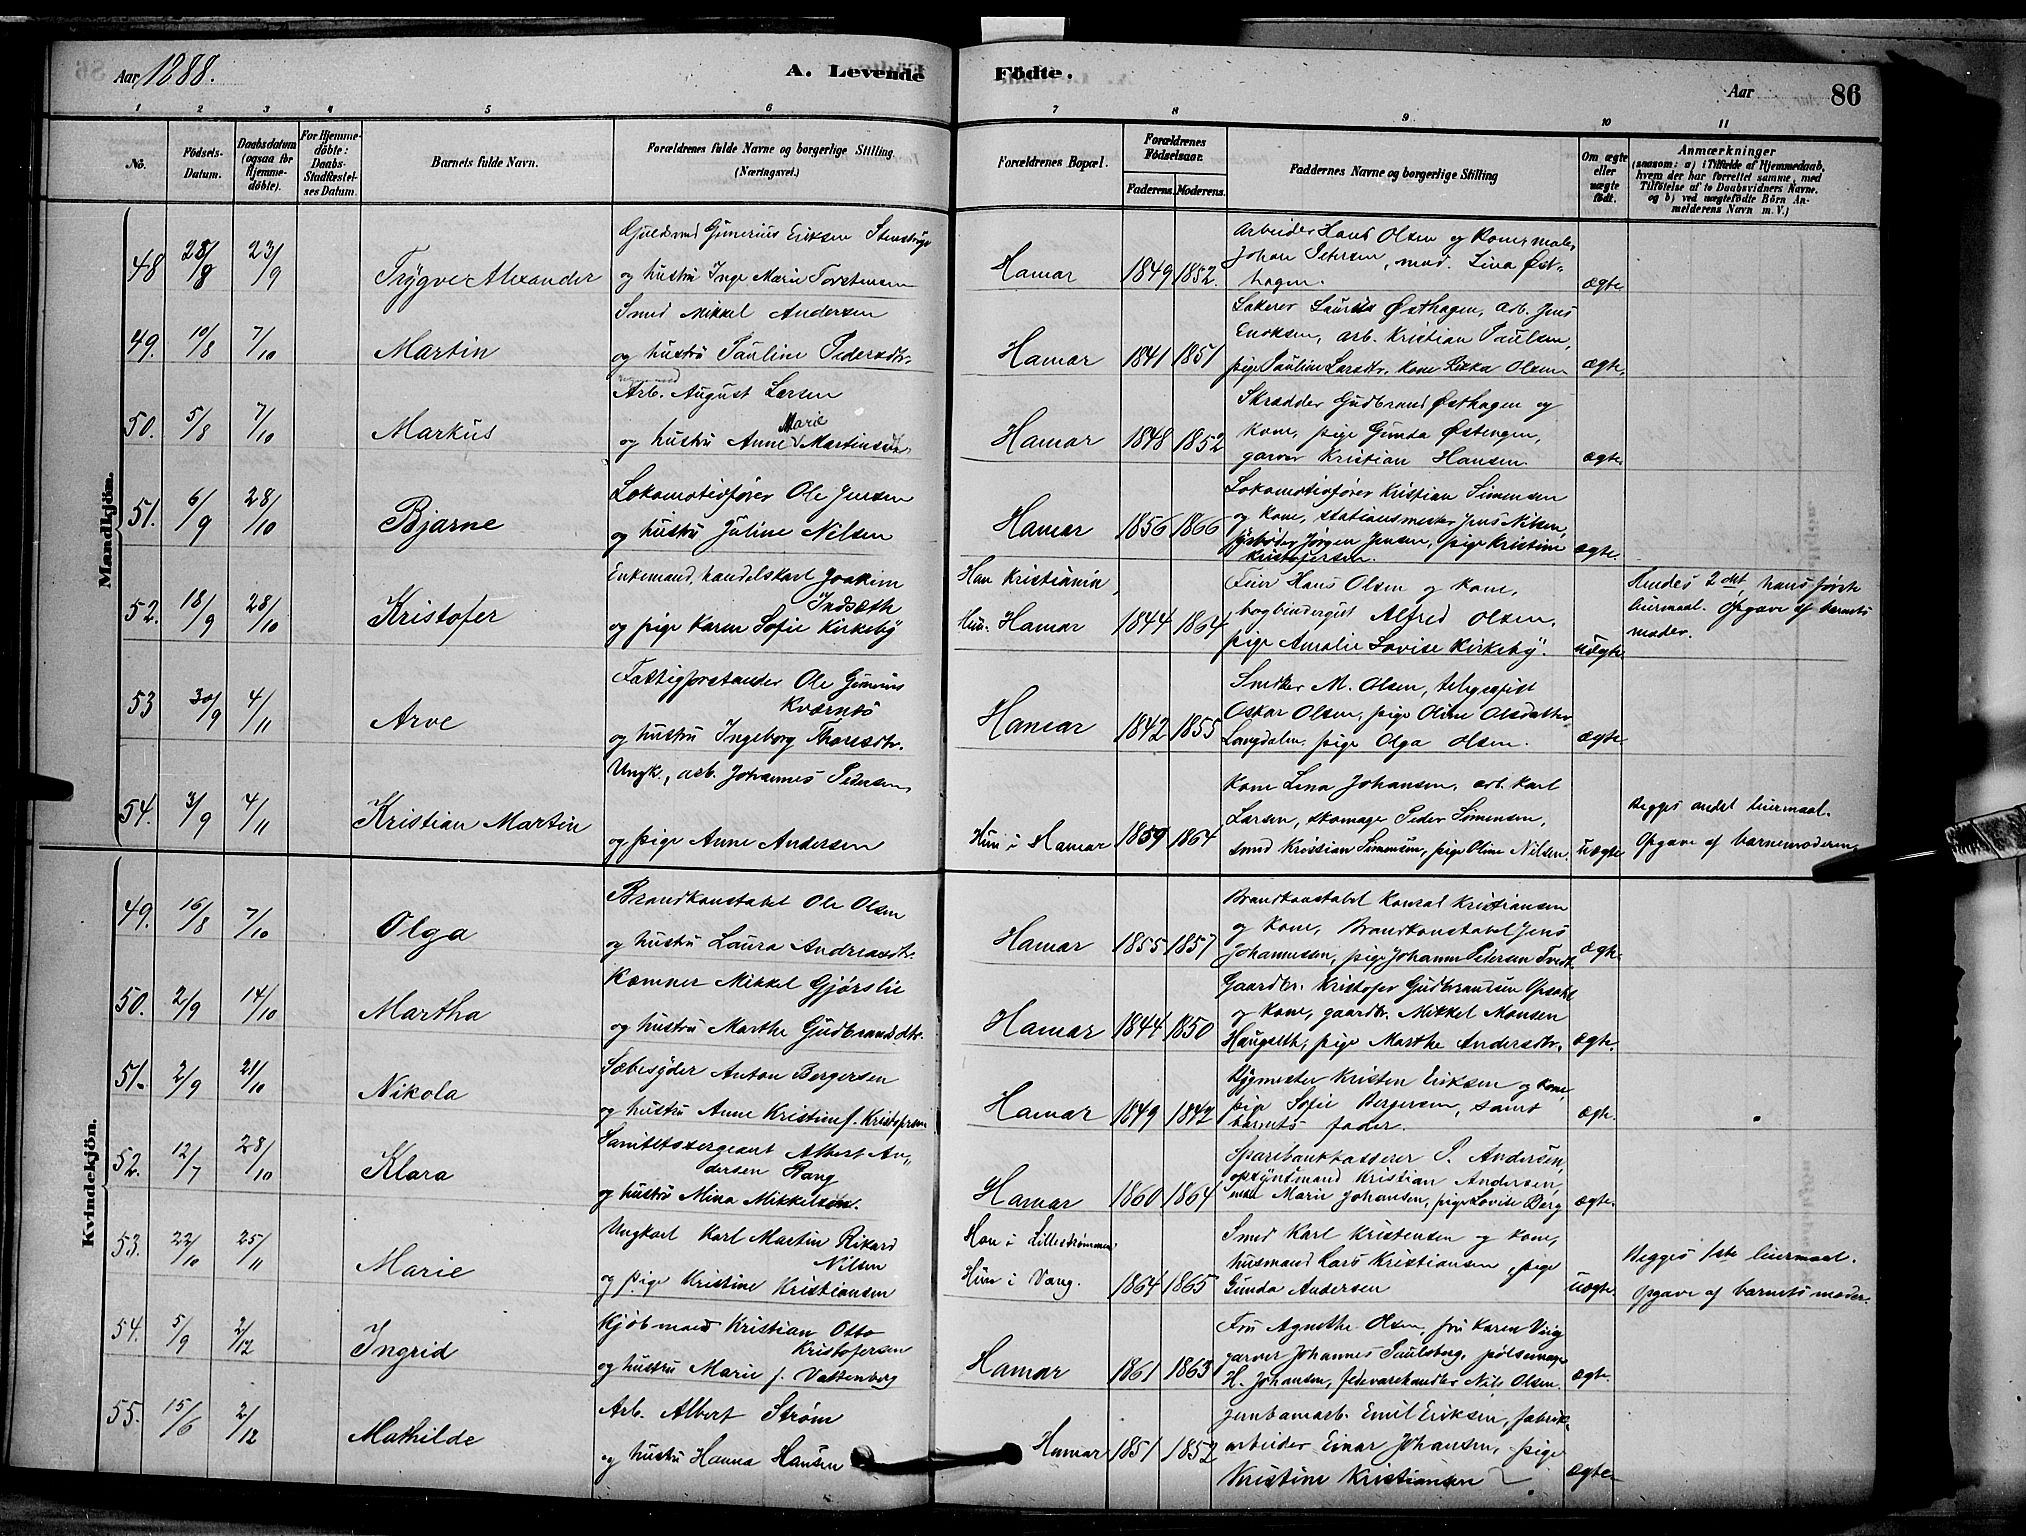 Aar 1888.
A. Levende Fødte.
Aar 86
1 2 3 4 5 6 7 8 9 10 11
No.
Fødsels-
Datum.
Daabsdatum
(ogsaa for
Hjemme-
døbte).
For Hjemme-
døbte:
Daabs-
Stadfæstel-
ses Datum.
Barnets fulde Navn.
Forældrenes fulde Navne og borgerlige Stilling
(Næringsvei.)
Forældrenes Bopæl.
Forældrenes
Fødselsaar.
Faderens. Moderens.
Faddernes Navne og borgerlige Stilling
Om ægte
eller
uægte
født.
Anmærkninger
(saasom: a) i Tilfælde af Hjemmedaab,
hvem der har forrettet samme, med
Tilføielse af to Daabsvidners Navne.
og b) ved uægtefødte Børn An-
melderens Navn m. V.)
Mandkjön.
48 28/8 23/9 Trygve Alexander
Guldsmed Gunerius Eriksen
og hustru Inge Marie Torstensen
Hamar 1849 1852.
Arbeider Hans Olsen og Kone, maler
Johan Petersen, mad. Lina Øst-
hagen. ægte
49. 10/8 7/10 Martin
Smed Mikkel Andersen
og hustru Pauline Pedersdtr.
Hamar 1841 1851
Østhagen, arb. Jens
Eriksen, arb. Kristian Paulsen,
pige Pauline Larsdtr, kone Olsen ægte.
50. 5/8 7/10 Markus
Arb. August Larsen
og hustru Anne Marie Martinsdtr.
Hamar 1848 1852
Skrædder Gudbrand Østhagen og
kone, pige Gunda Østengen,
garver Kristian Hansen. ægte.
51. 6/9 28/10 Bjarne
Lokomotivfører Ole Jensen
og hustru Juline Nilsen
Hamar 1856 1866
Lokomotivfører Kristian Simensen
og kone, stationsmester Jens Nilsen,
fyrbøder Jørgen Jensen, pige Kristine
Kristofersen. ægte.
52. 18/9 28/10 Kristofer
Enkemand, handelskarl Joakim
Indsæth
og pige Karen Sofie Kirkeby
Han Kristiania,
Hun. Hamar 1844 1864
Feier Hans Olsen og kone,
bogbinder Alfred Olsen,
pige Amalie Lovise Kirkeby. uægte
Hendes 2det, hans første
leiermaal. Opgave af barnets
moder.
53 30/9 4/11 Arve
Fattigforstander Ole Gunerius
Kværnes
og hustru Ingeborg Thoresdtr.
Hamar 1842 1855
Snedker M. Olsen, telegrafist
Oskar Olsen, pige Oline Olsdatter
Langdalen, pige Olga Olsen. ægte.
54. 3/9 4/11 Kristian Martin
Ungk., arb. Johannes Petersen,
og pige Anne Andersen
Hun i Hamar 1859 1864
Kone Lina Johansen, arb. Karl
Larsen, skomager Peder Simensen,
smed Kristian Simensen, pige Oline Nilsen. uægte
Begges andet leiermaal.
Opgave af barnemoderen.
Kvindekjön.
49. 16/8 7/10 Olga
Brandkonstabel Ole Olsen
og hustru Laura Andreasdtr.
Hamar 1855 1857
Brandkonstabel Konrad Kristiansen
og kone, Brandkonstabel Jens
Johannesen, pige Johanne Petersen ægte.
50. 2/9 14/10 Martha
Kæmner Mikkel Gjørslie
og hustru Marthe Gudbrandsdtr.
Hamar 1844 1850
Gaardbr. Kristofer Gudbrandsen Opsahl
og kone, gaardbr. Mikkel Monsen
Haugseth, pige Marthe Andersdtr. ægte.
51. 2/9 21/10 Nikola
Sæbesyder Anton Bergersen
og hustru Anne Kristine f. Kristofersen
Hamar 1849 1842
Bygmester Kristen Eriksen og kone,
pige Sofie Bergersen, samt
barnets fader. ægte.
52. 12/7 28/10 Klara
Sanitetssergeant Albert An-
dersen Bang
og hustru Mina Mikkelsen.
Hamar 1860 1864
Sparebankkasserer P. Andersen,
opsynsmand Kristian Andersen,
mad. Marie Johansen, pige Lovise Berg ægte.
53. 22/10 25/11 Marie
Ungkarl Karl Martin Rikard
Nilsen
og pige Kristine Kristiansen
Han i Lillestrømmen.
Hun i Vang. 1864 1865
Smed Karl Kristensen og kone,
husmand Lars Kristiansen, pige
Gunda Andersen uægte.
Begges 1ste leiermaal.
Opgave af barnets moder.
54. 5/9 2/12 Ingrid
Kjøbmand Kristian Otto
Kristofersen
og hustru Marie f. Vattenberg
Hamar 1861 1863
Fru Agnethe Olsen, fru Karen
garver Johannes Paulsberg, pølsemager
H. Johansen, fedevarehandler Nils Olsen. ægte.
55. 15/6 2/12 Mathilde
Arb. Albert Strøm
og hustru Hanna Hansen
Hamar 1851 1852
Jernbanearb. Emil Eriksen, fabrik-
arbeider Einar Johansen, pige
Kristine Kristiansen ægte.